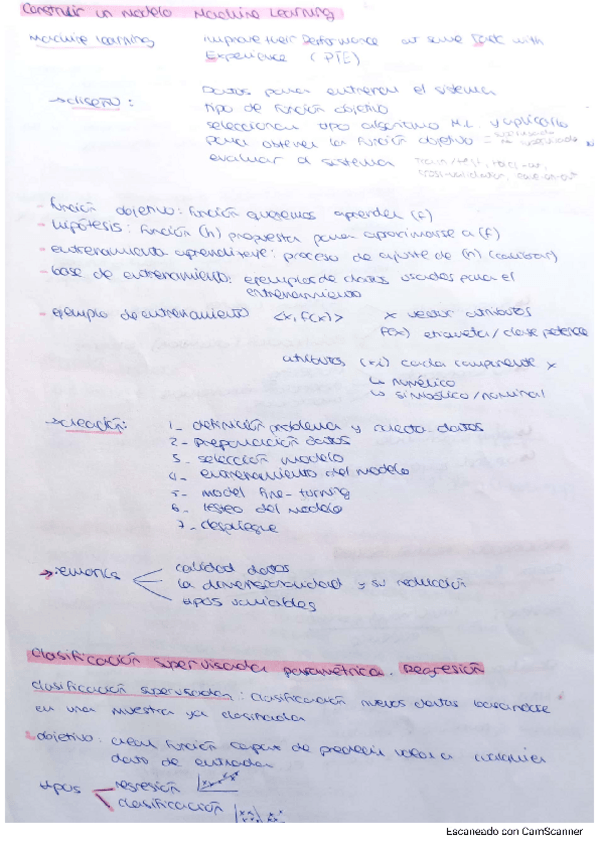 Construir un modelo Machine Learning
Machine Learning improve their Performance at some Task with
Experience (PTE)
→ diseño: Datos para entrenar el sistema
tipo de función objetivo
seleccionar tipo algoritmo M.L. y aplicarlo
para obtener la función objetivo = supervisado
no supervisado
evaluar a sistema train/test,
- función objetivo: función queremos aprender (f)
- hipótesis: función (h) propuesta para aproximarse a (f)
- entrenamiento aprendizaje: proceso de ajuste de (h)
- base de entrenamiento: ejemplos de datos usados para el
entrenamiento
- ejemplo de entrenamiento <x, f(x)> x vector atributos
f(x) etiqueta/clase
atributos (xi) cada componente x
↳ numérico
↳ simbólico/nominal
→ creación: 1_ definición problema y datos
2_ preparación datos
3_ selección modelo
4_ entrenamiento del modelo
5_ model fine-turning
6_ testeo del modelo
7_ despliegue
calidad datos
la dimensionalidad y su reducción
tipos variables
Clasificación supervisada paramétrica. Regresión
clasificación supervisada: clasificación nuevos datos basandose
en una muestra ya clasificada
objetivo: crear función capaz de predecir valor a cualquier
dato de entrada
tipos regresión
clasificación
Escaneado con CamScanner